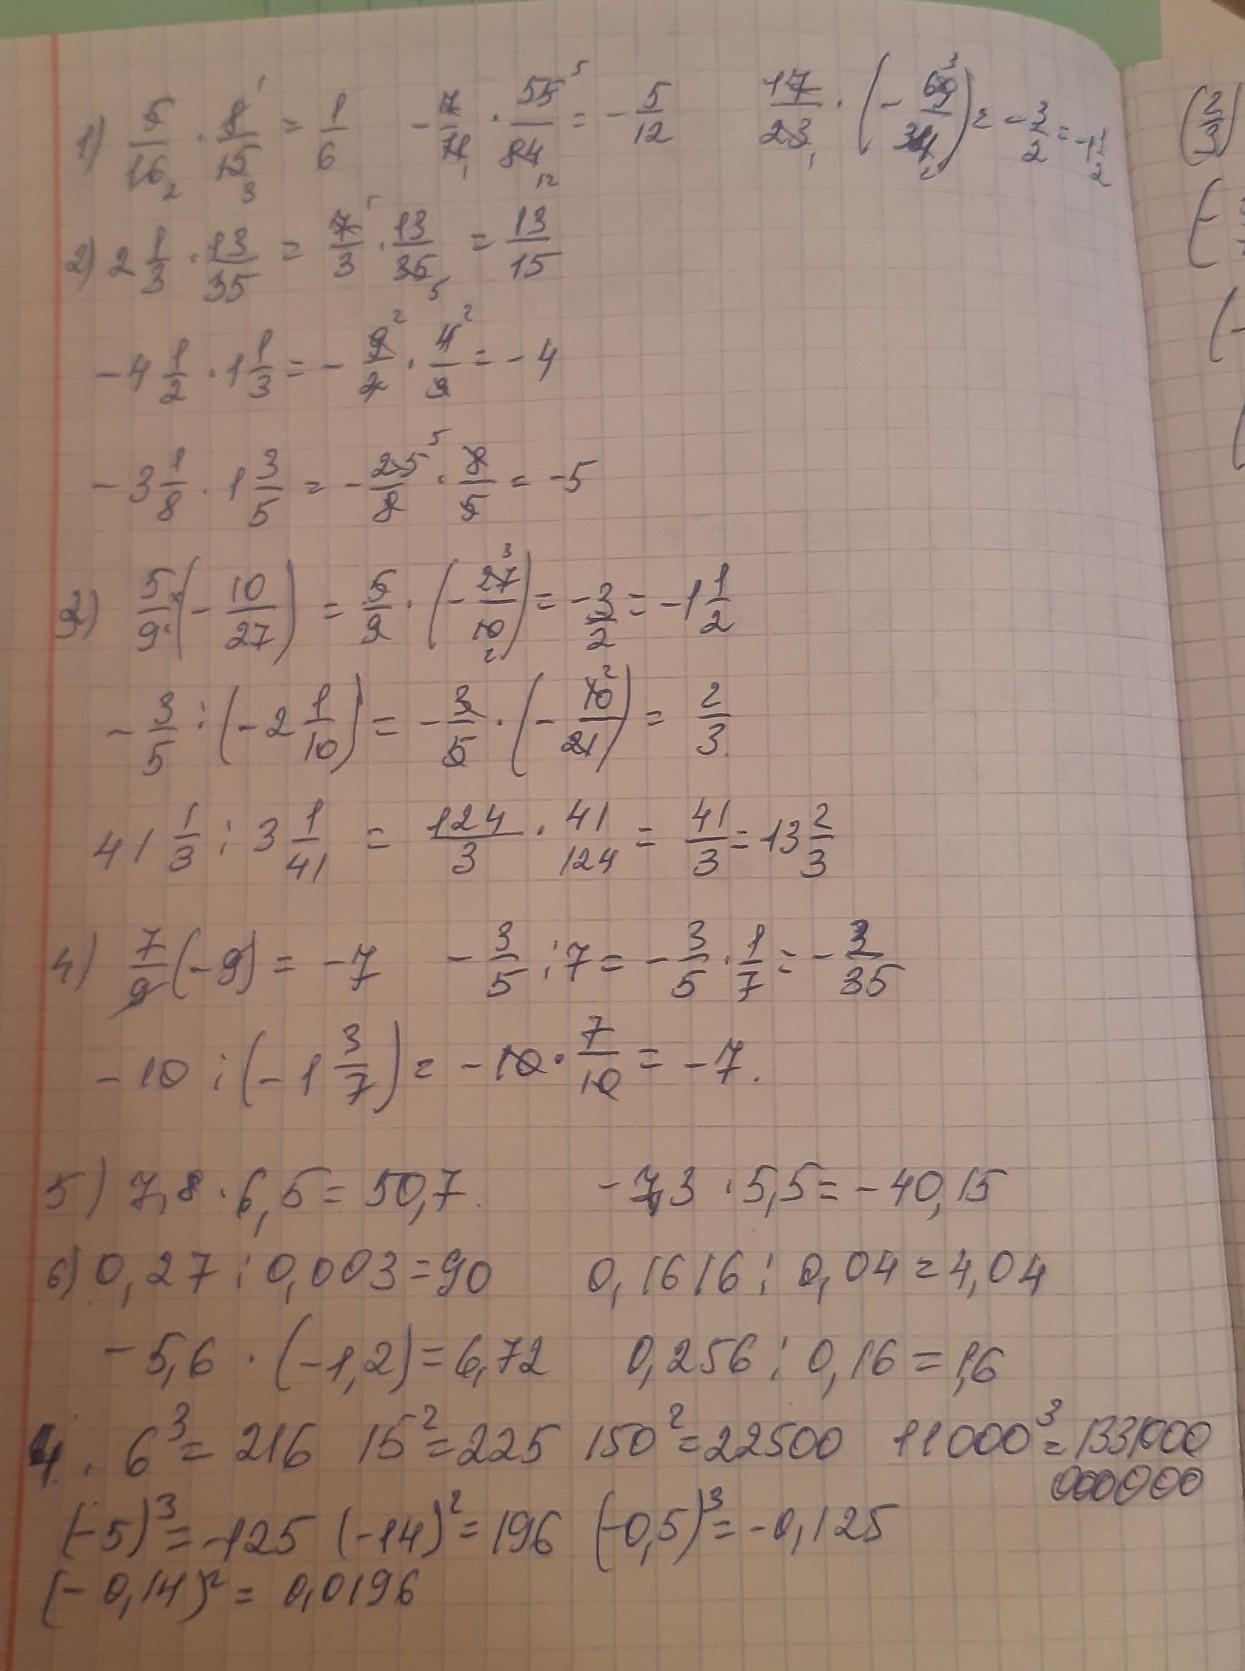 1) 5/16 · 8/15 = 1/6   - 7/11 · 55/84 = - 5/12   17/23 · (- 69/34) = - 3/2 = -1 1/2
2) 2 1/3 · 13/35 = 7/3 · 13/35 = 13/15
- 4 1/2 · 1 1/3 = - 9/2 · 4/3 = - 4
- 3 1/8 · 1 3/5 = - 25/8 · 8/5 = -5
3) 5/9 : (- 10/27) = 5/9 · (- 27/10) = - 3/2 = -1 1/2
- 3/5 : (-2 1/10) = - 3/5 · (- 10/21) = 2/3
41 1/3 : 3 1/41 = 124/3 · 41/124 = 41/3 = 13 2/3
4) 7/9 (-9) = -7   - 3/5 : 7 = - 3/5 · 1/7 = - 3/35
- 10 : (-1 3/7) = -10 · 7/10 = -7.
5) 7,8 · 6,5 = 50,7.   -7,3 · 5,5 = -40,15
6) 0,27 : 0,003 = 90   0,1616 : 0,04 = 4,04
-5,6 · (-1,2) = 6,72   0,256 : 0,16 = 1,6
4. 6³ = 216   15² = 225   150² = 22500   11000³ = 1331000
000000
(-5)³ = -125   (-14)² = 196   (-0,5)³ = -0,125
(-0,14)² = 0,0196
(2/3)